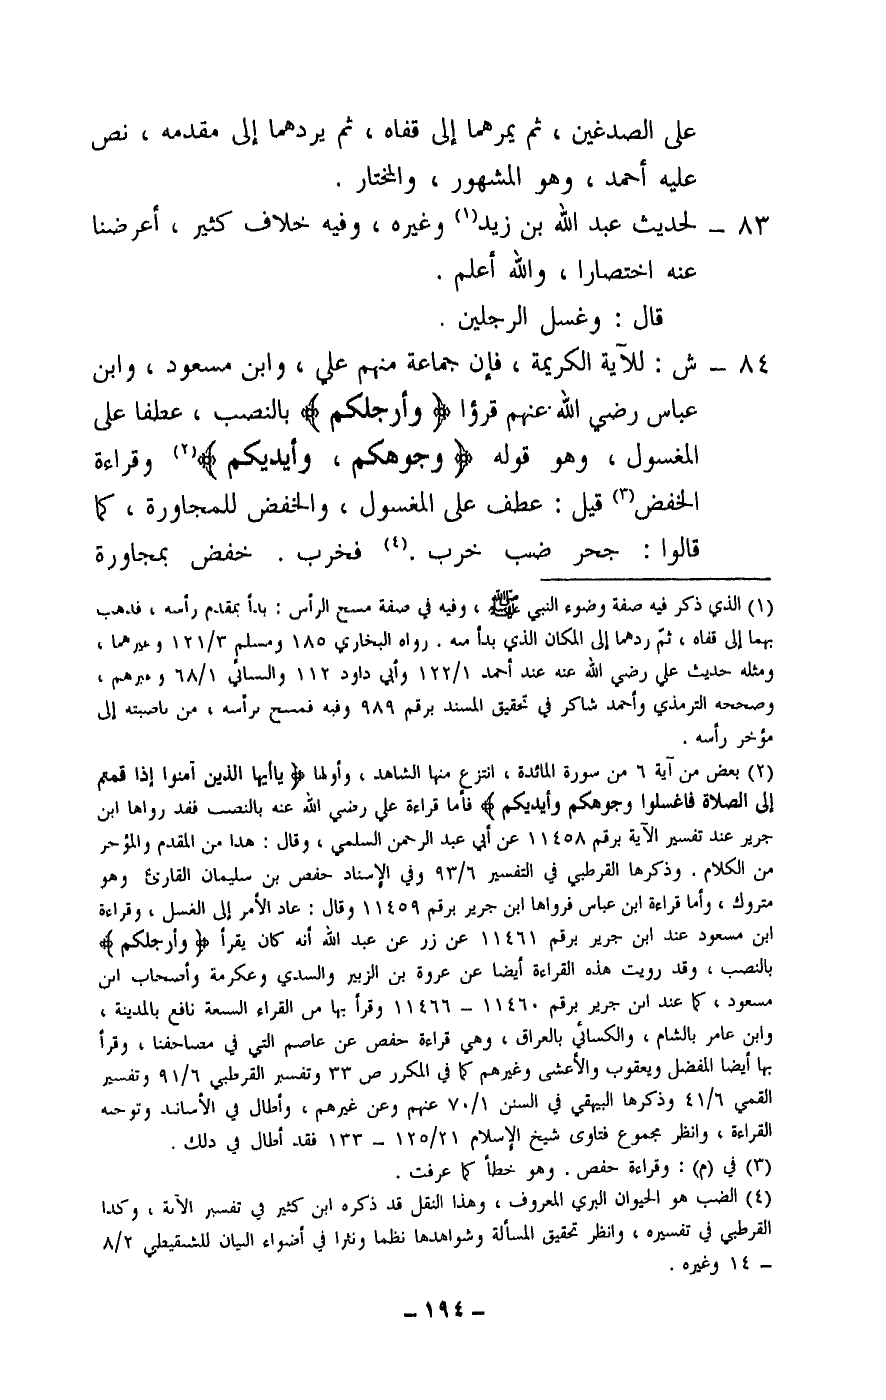 على الصدغين ، ثم يمرهما إلى قفاه ، ثم يردهما إلى مقدمه ، نص
عليه أحمد ، وهو المشهور ، والمختار .
٨٣ – لحديث عبد الله بن زيد(١) وغيره ، وفيه خلاف كثير ، أعرضنا
عنه اختصارا ، والله أعلم .
قال : وغسل الرجلين .
٨٤ – ش : للآية الكريمة ، فإن جماعة منهم علي ، وابن مسعود ، وابن
عباس رضي الله عنهم قرؤا ﴿ وأرجلكم ﴾ بالنصب ، عطفا على
المغسول ، وهو قوله ﴿ وجوهكم ، وأيديكم ﴾(٢) وقراءة
الخفض(٣) قيل : عطف على المغسول ، والخفض للمجاورة ، كما
قالوا : جحر ضب خرب .(٤) فخرب . خفض بمجاورة
(١) الذي ذكر فيه صفة وضوء النبي ﷺ ، وفيه في صفة مسح الرأس : بدأ بمقدم رأسه ، فذهب
بهما إلى قفاه ، ثمّ ردهما إلى المكان الذي بدأ منه . رواه البخاري ١٨٥ ومسلم ١٢١/٣ وغيرهما ،
ومثله حديث علي رضي الله عنه عند أحمد ١٢٢/١ وأبي داود ١١٢ والنسائي ٦٨/١ وغيرهم ،
وصححه الترمذي وأحمد شاكر في تحقيق المسند برقم ٩٨٩ وفيه فمسح برأسه ، من ناصيته إلى
مؤخر رأسه .
(٢) بعض من آية ٦ من سورة المائدة ، انتزع منها الشاهد ، وأولها ﴿ ياأيها الذين آمنوا إذا قمتم
إلى الصلاة فاغسلوا وجوهكم وأيديكم ﴾ فأما قراءة علي رضي الله عنه بالنصب فقد رواها ابن
جرير عند تفسير الآية برقم ١١٤٥٨ عن أبي عبد الرحمن السلمي ، وقال : هذا من المقدم والمؤخر
من الكلام . وذكرها القرطبي في التفسير ٩٣/٦ وفي الإسناد حفص بن سليمان القارئ وهو
متروك ، وأما قراءة ابن عباس فرواها ابن جرير برقم ١١٤٥٩ وقال : عاد الأمر إلى الغسل ، وقراءة
ابن مسعود عند ابن جرير برقم ١١٤٦١ عن زر عن عبد الله أنه كان يقرأ ﴿ وأرجلكم ﴾
بالنصب ، وقد رويت هذه القراءة أيضا عن عروة بن الزبير والسدي وعكرمة وأصحاب ابن
مسعود ، كما عند ابن جرير برقم ١١٤٦٠ – ١١٤٦٦ وقرأ بها من القراء السبعة نافع بالمدينة ،
وابن عامر بالشام ، والكسائي بالعراق ، وهي قراءة حفص عن عاصم التي في مصاحفنا ، وقرأ
بها أيضا المفضل ويعقوب والأعشى وغيرهم كما في المكرر ص ٣٣ وتفسير القرطبي ٩١/٦ وتفسير
القمي ٤١/٦ وذكرها البيهقي في السنن ٧٠/١ عنهم وعن غيرهم ، وأطال في الأسانيد وتوجيه
القراءة ، وانظر مجموع فتاوى شيخ الإسلام ١٢٥/٢١ – ١٣٣ فقد أطال في ذلك .
(٣) في (م) : وقراءة حفص . وهو خطأ كما عرفت .
(٤) الضب هو الحيوان البري المعروف ، وهذا النقل قد ذكره ابن كثير في تفسير الآية ، وكذا
القرطبي في تفسيره ، وانظر تحقيق المسألة وشواهدها نظما ونثرا في أضواء البيان للشنقيطي ٨/٢
– ١٤ وغيره .
– ١٩٤ –